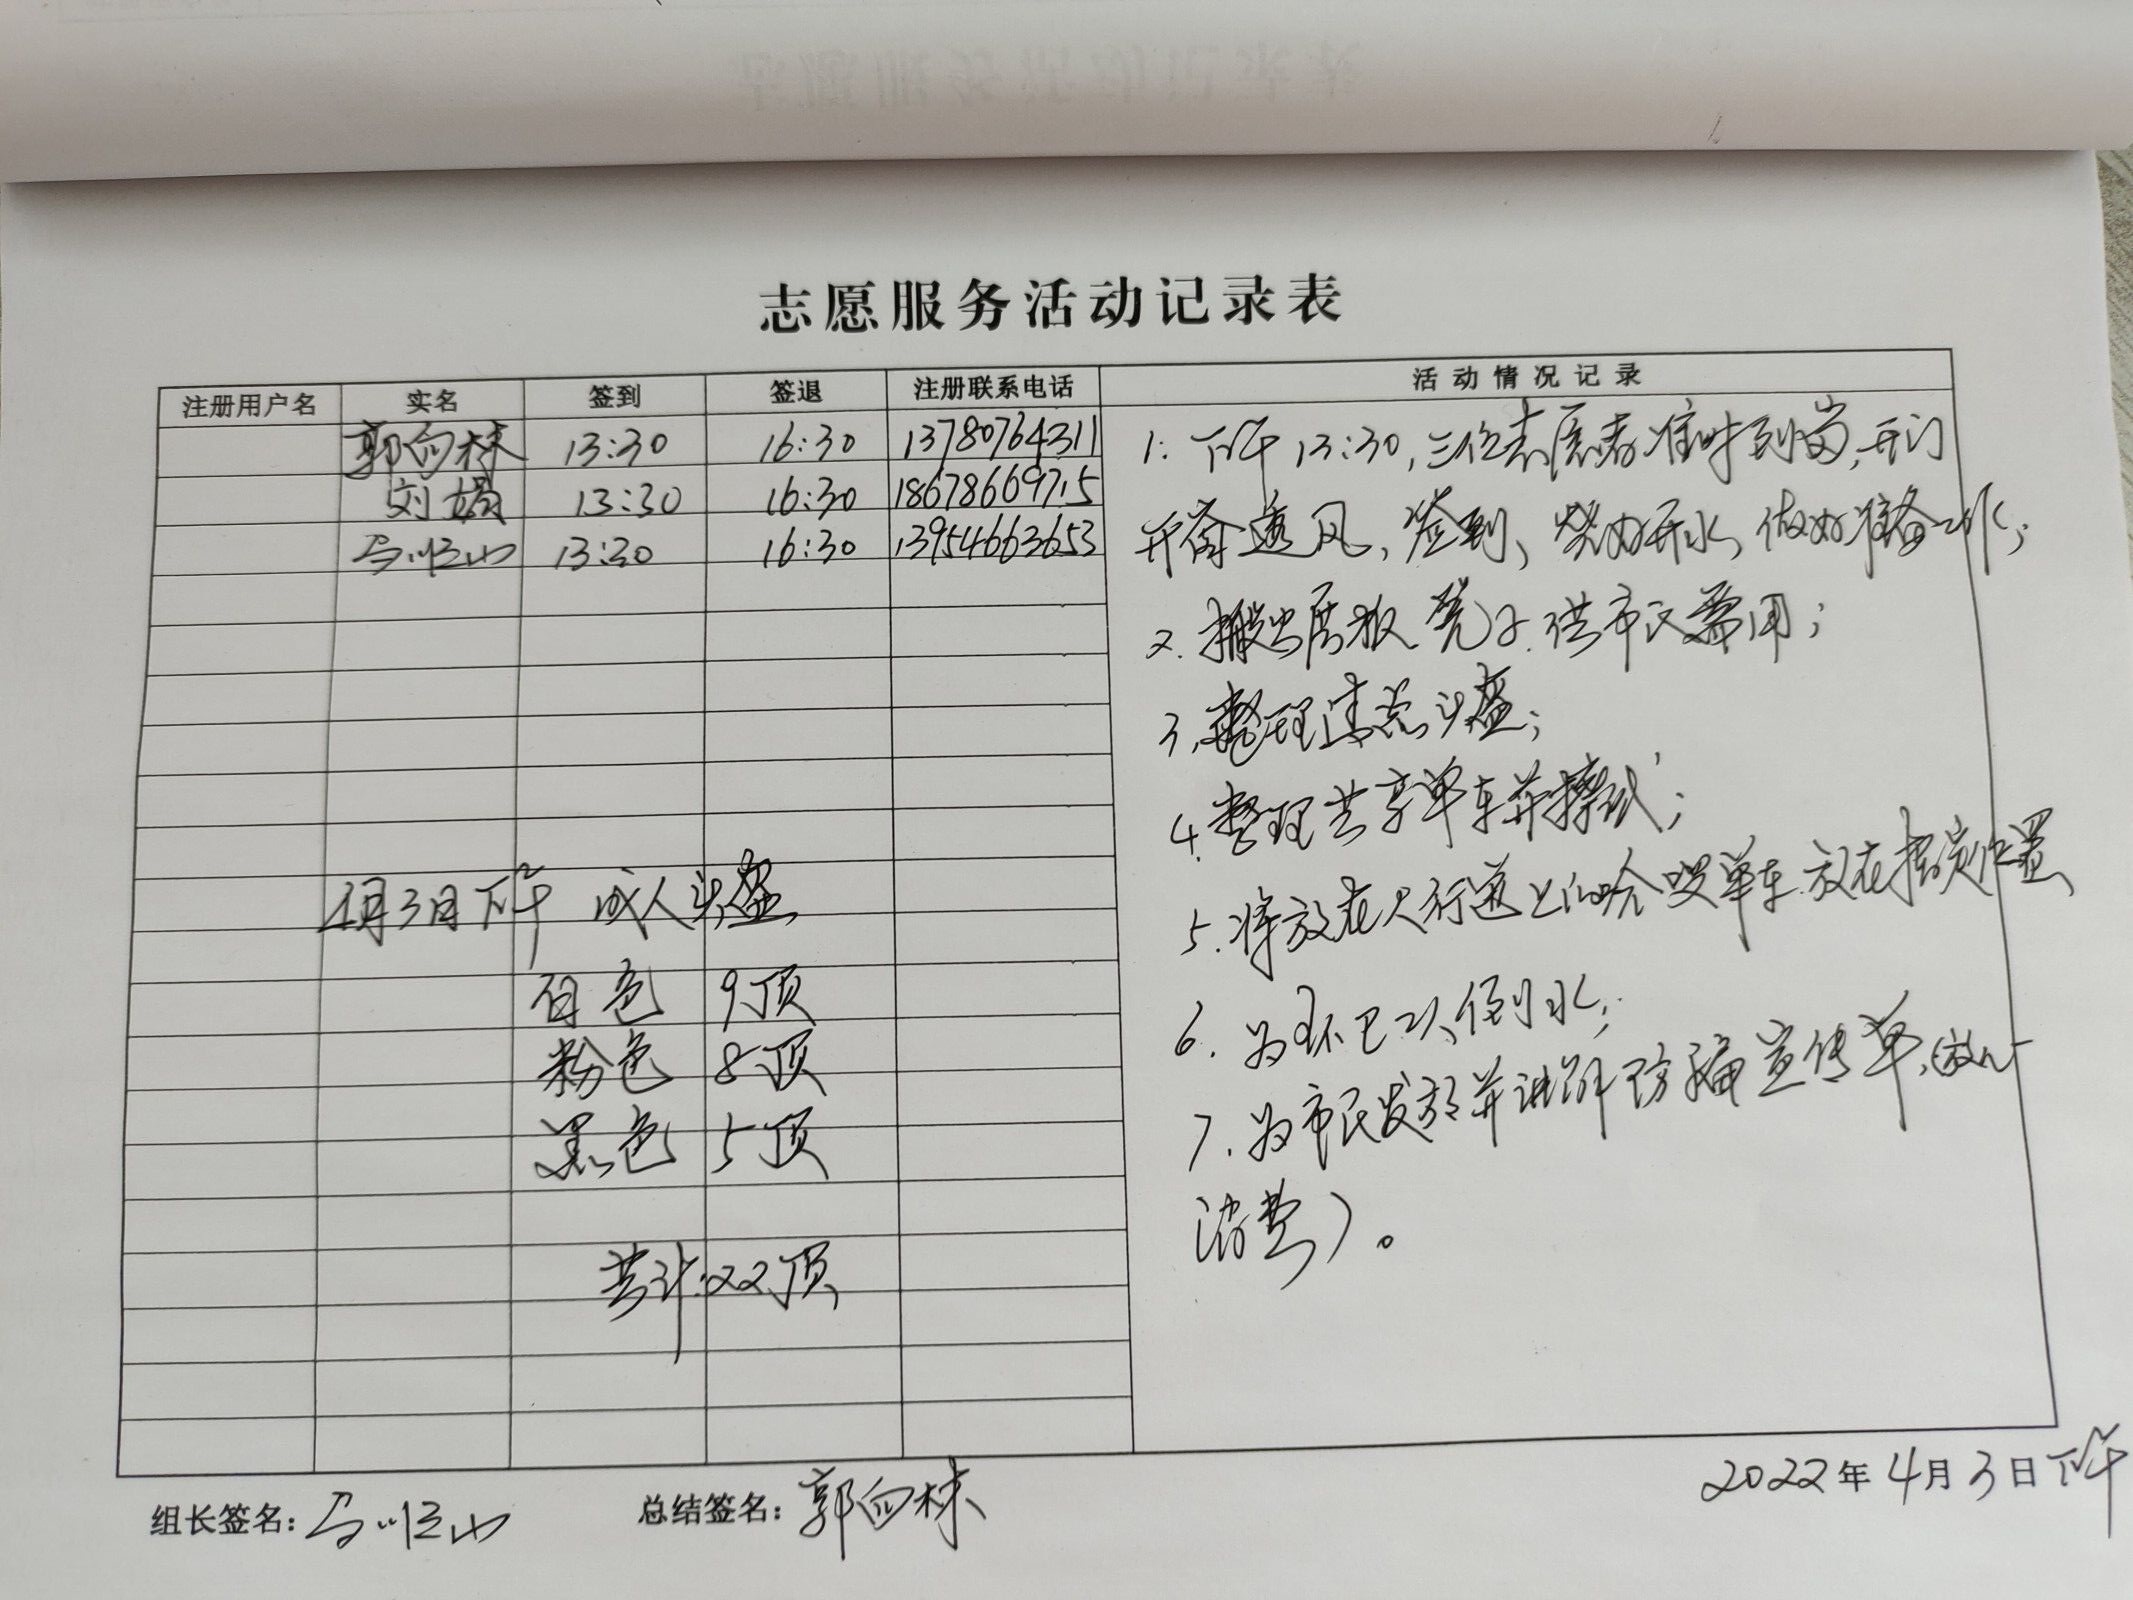 志愿服务活动记录表
注册用户名 实名 签到 签退 注册联系电话 活动情况记录
郭向林 13:30 16:30 13780764311
刘娟 13:30 16:30 18678669715
马恒山 13:30 16:30 13954663653
4月3日下午 成人头盔
白色 9顶
粉色 8顶
黑色 5顶
共计:22顶
1. 下午13:30,三位志愿者准时到岗,开门
开窗透风、签到、烧好开水,做好准备工作;
2. 搬出展板凳子.供市民需用;
3.整理清点头盔;
4.整理共享单车并擦拭;
5.将放在人行道上的哈啰单车.放在指定位置
6.为环卫工人倒水;
7.为市民发放并讲解防骗宣传单.
组长签名:马恒山 总结签名:郭向林 2022年4月3日下午